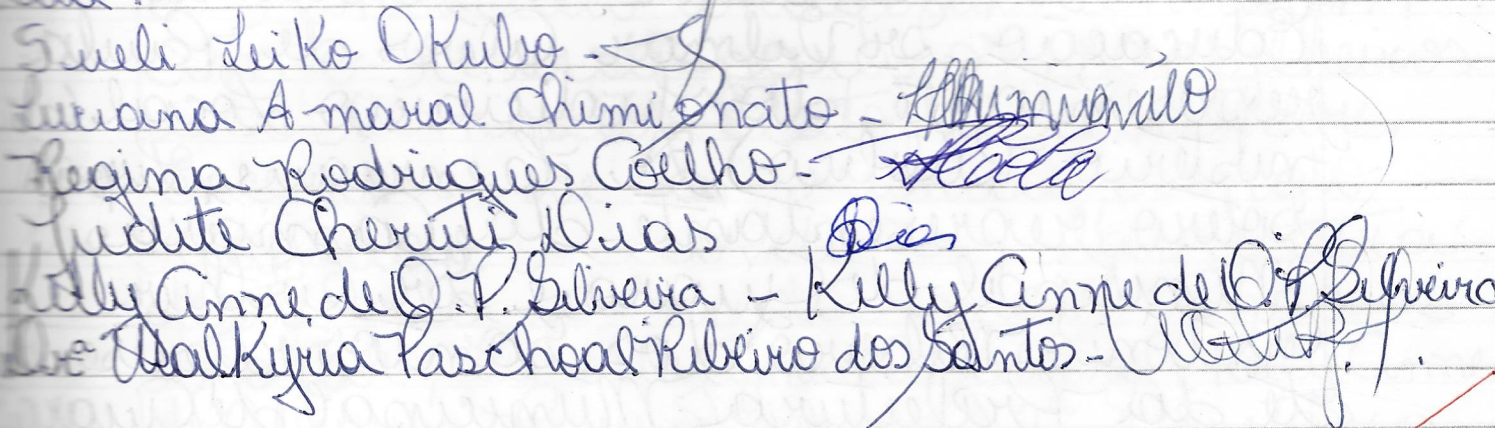 Sueli Leiko Okubo -
Luciana Amaral Chimionato - LAChimionato
Regina Rodrigues Coelho -
Judite Cheruti Dias Dias
Kelly Anne de O. P. Silveira - Kelly Anne de O. P. Silveira
Drª Walkyria Paschoal Ribeiro dos Santos -